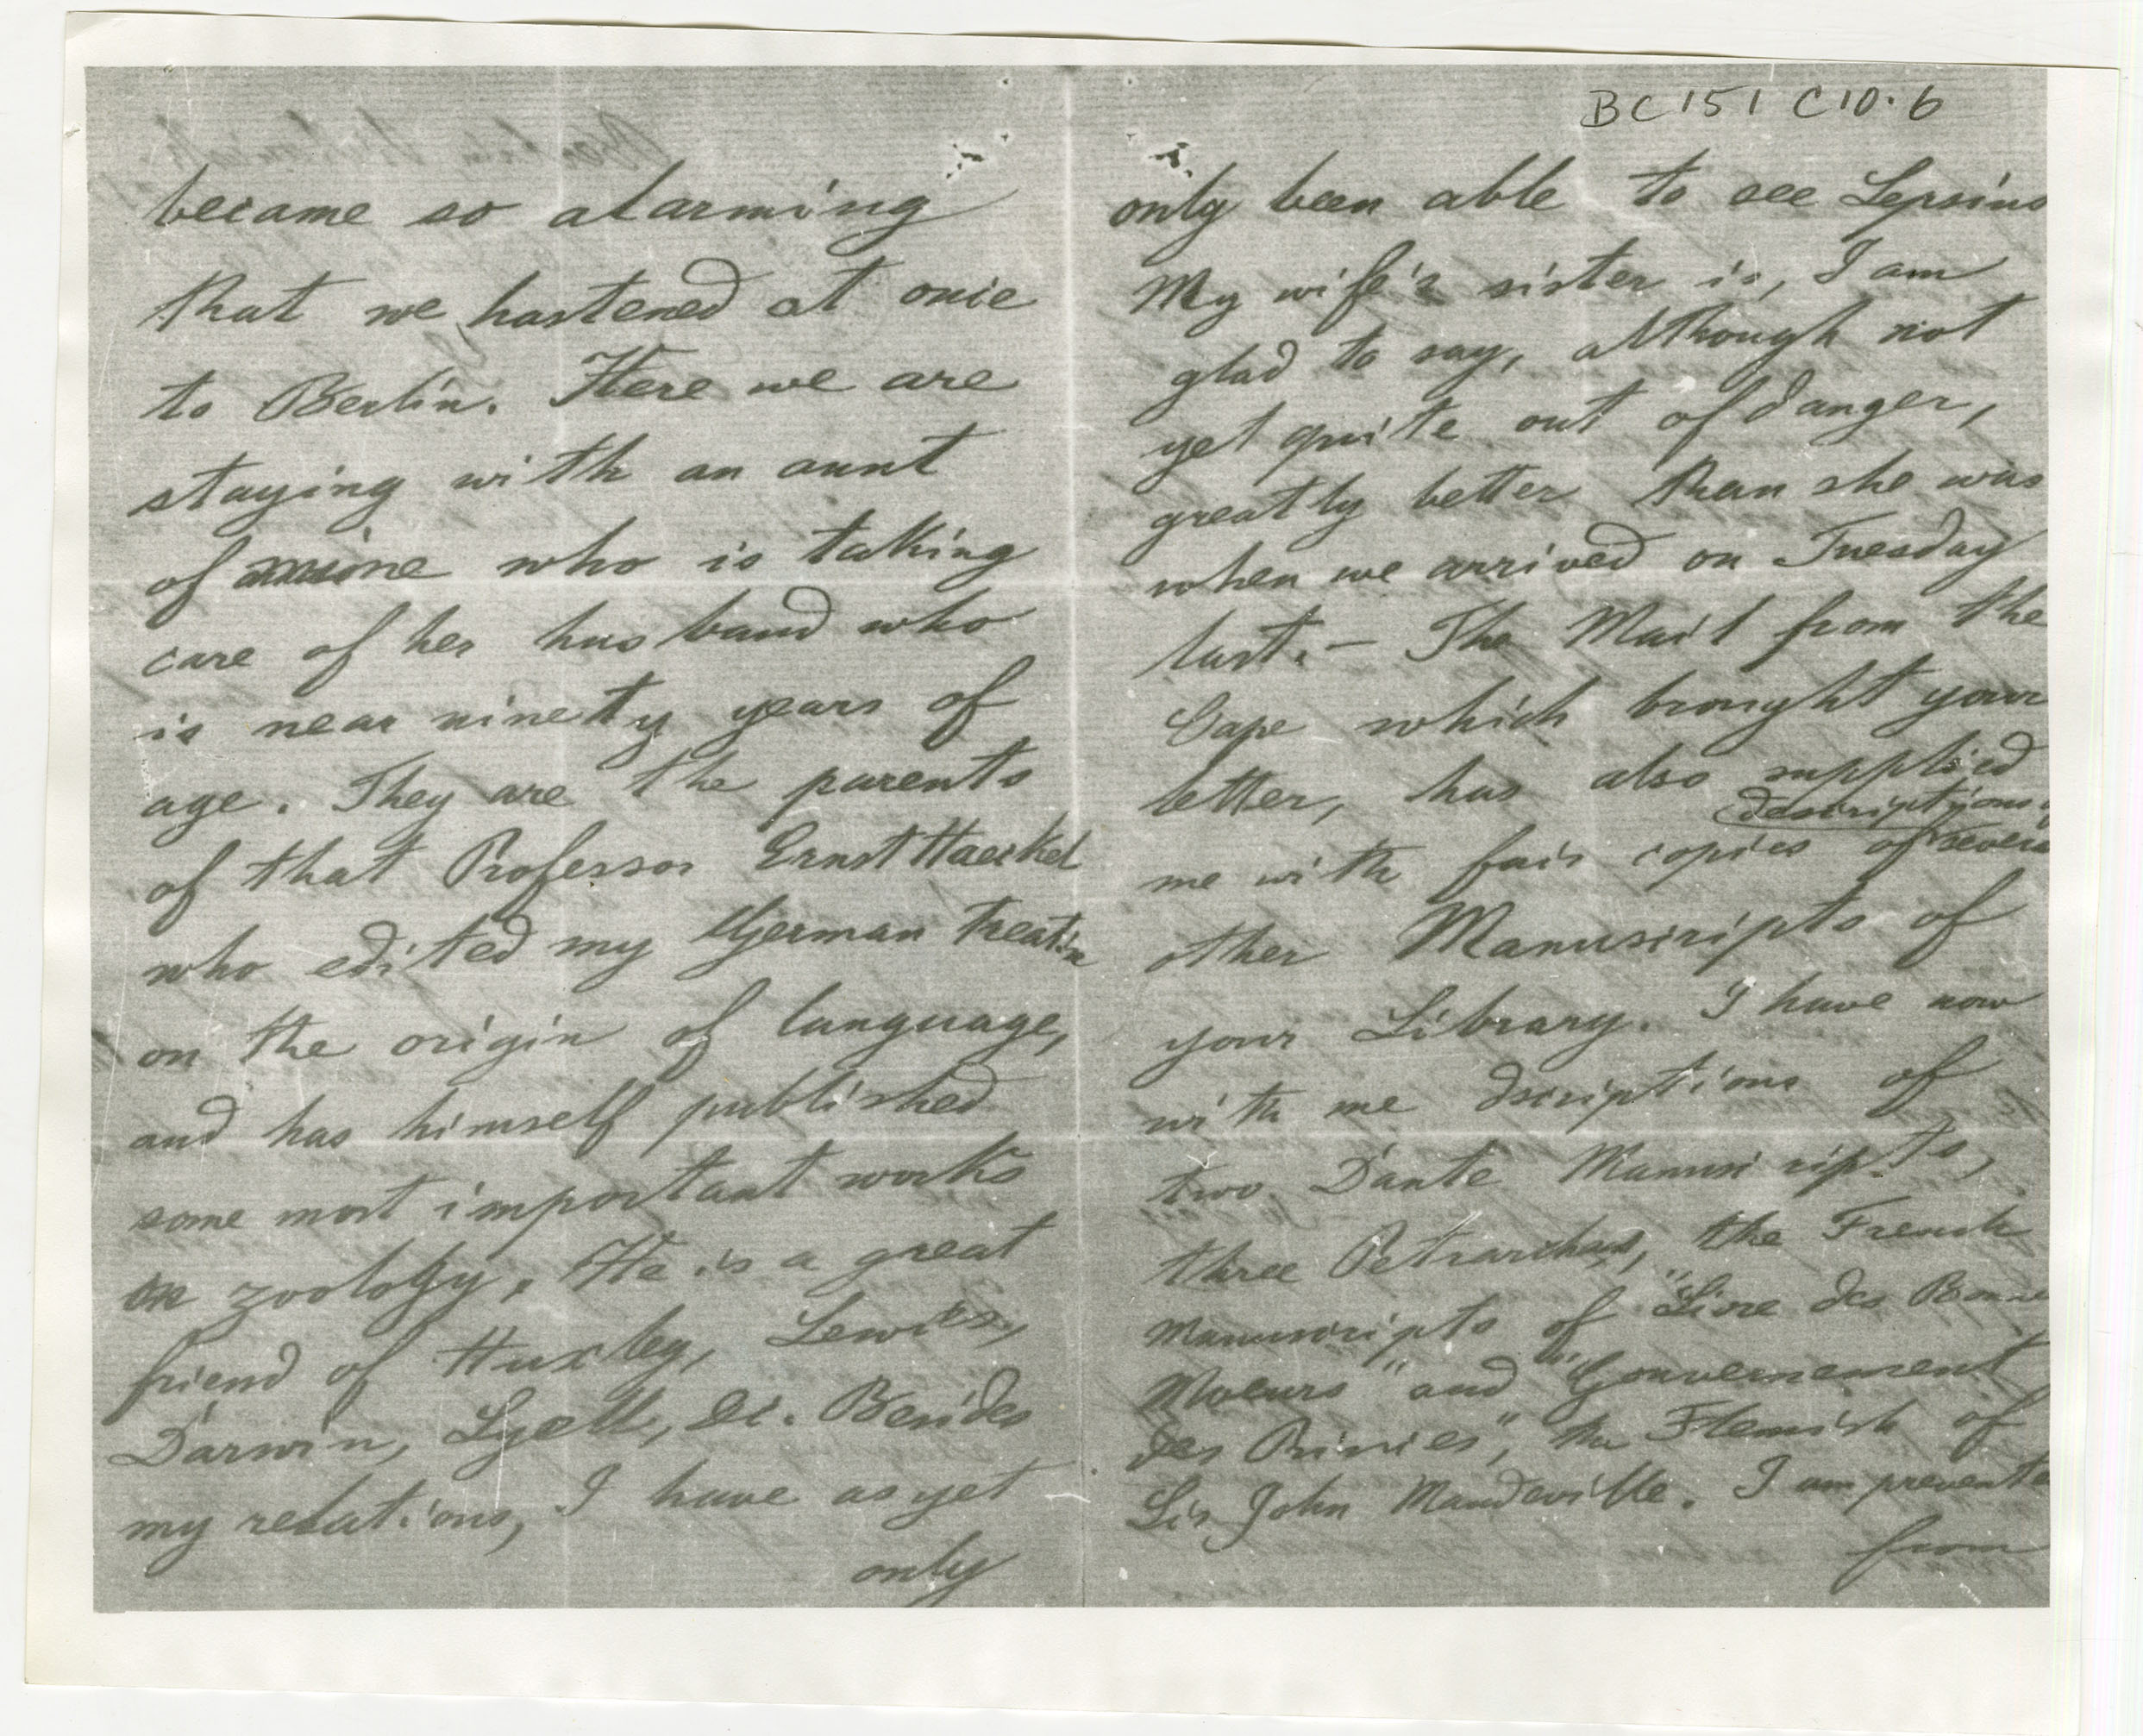 BC 151 C10.6
became so alarming
that we hastened at once
to Berlin. Here we are
staying with an aunt
of mine who is taking
care of her husband who
is near ninety years of
age. They are the parents
of that Professor Ernst Haeckel
who edited my German treatise
on the origin of language,
and has himself published
some most important works
on zoology. He is a great
friend of Huxley, Lewes,
Darwin, Lyell, &c. Besides
my relations, I have as yet
only
only been able to see Lepsius
My wife's sister is, I am
glad to say, although not
yet quite out of danger,
greatly better than she was
when we arrived on Tuesday
last. – The Mail from the
Cape which brought your
letter, has also supplied
descriptions of
me with fair copies of several
other Manuscripts of
your Library. I have now
with me dscriptions of
two Dante Manuscripts,
three Petrarchas, the French
Manuscripts of "Livre des Bonnes
Moeurs" and "Gouvernement
des Princes", the Flemish of
Sir John Mandeville. I am prevented
from